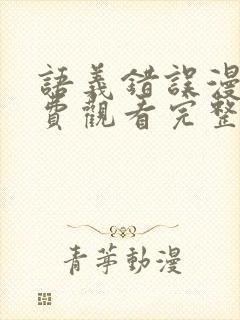 語義錯誤漫
費觀看完整
青苹動漫